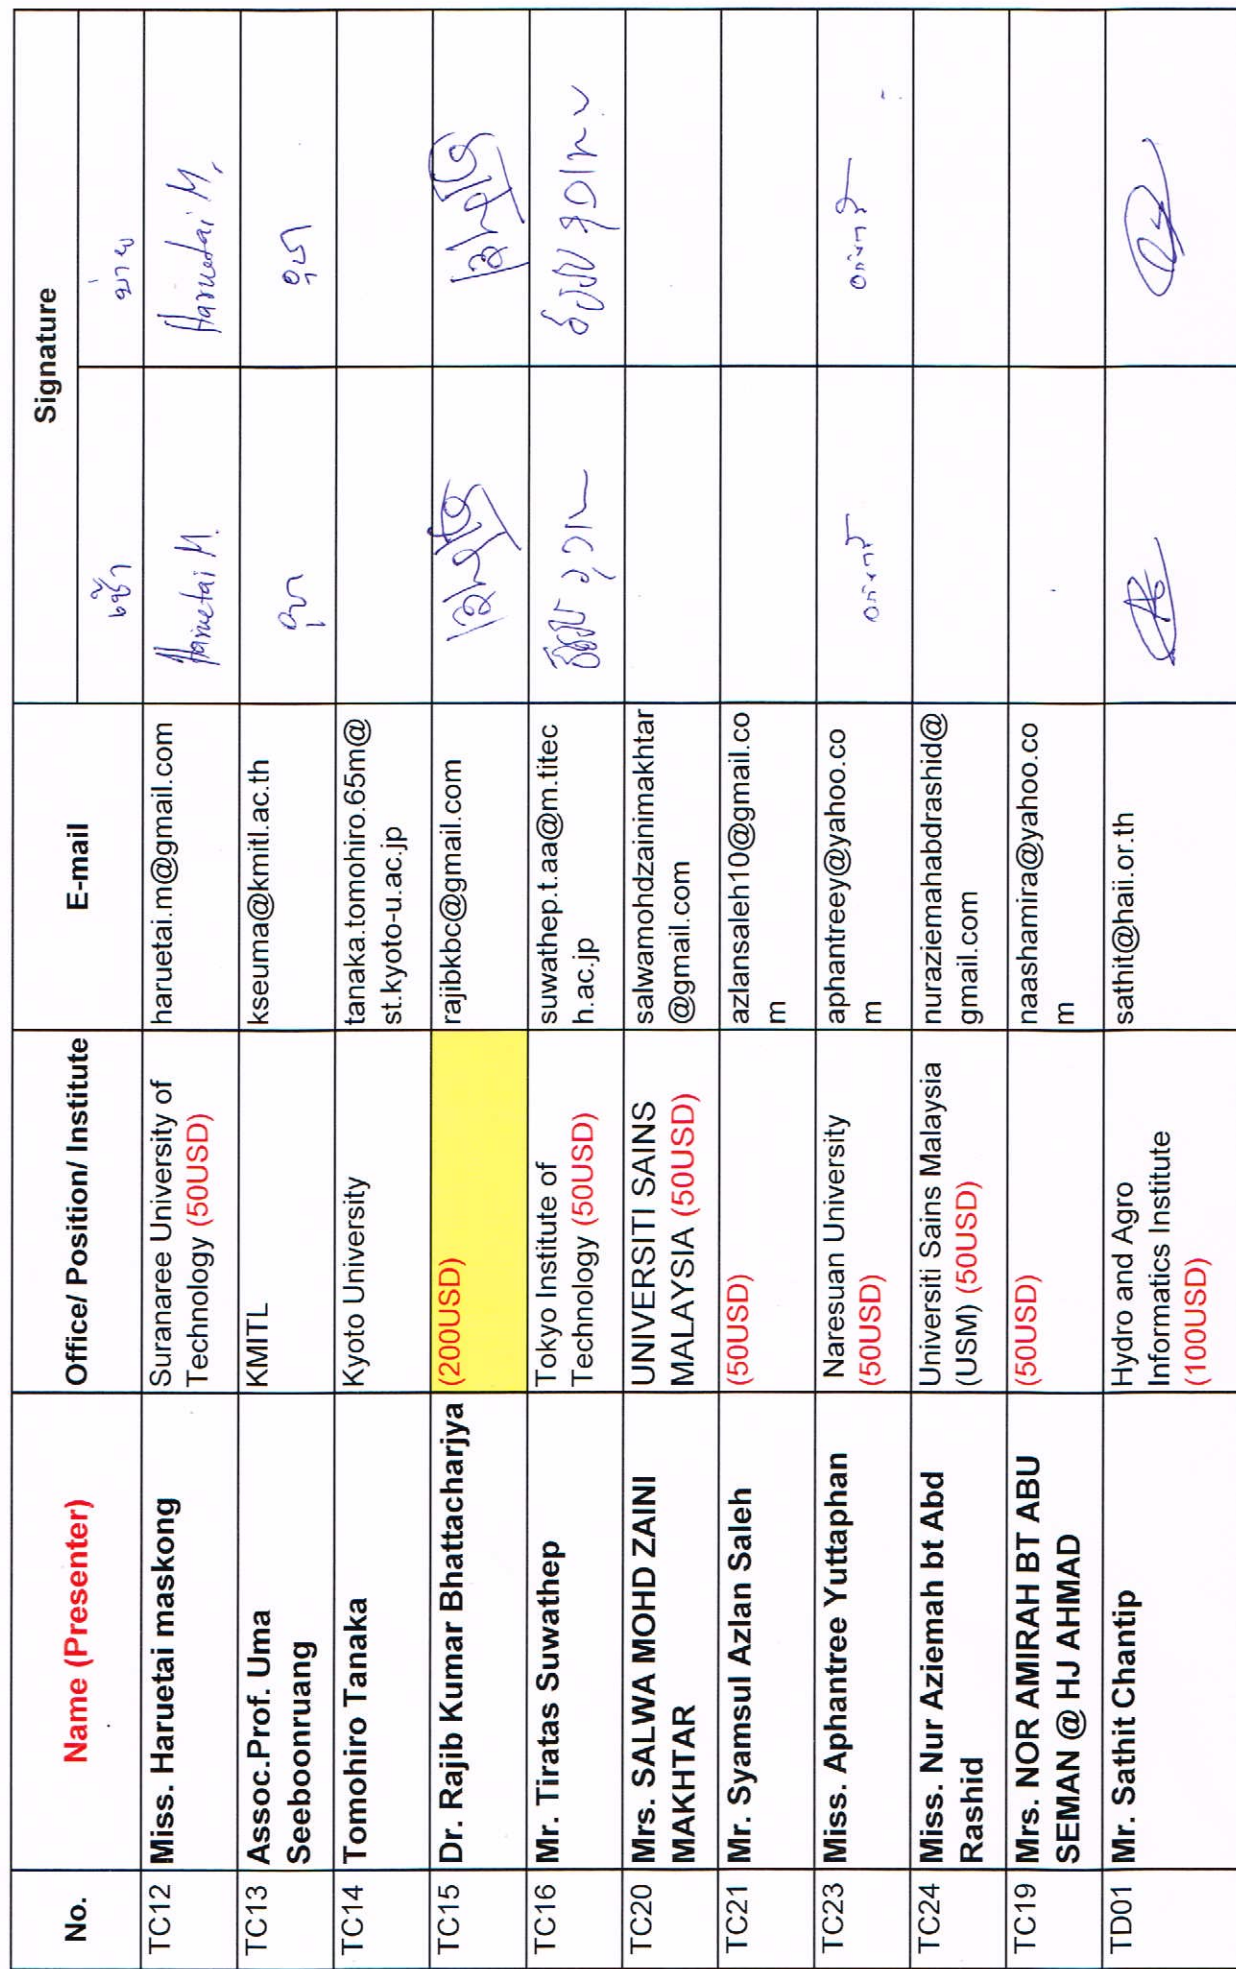 No.
Name (Presenter)
Office/ Position/ Institute
E-mail
Signature
เช้า
บ่าย
TC12
Miss. Haruetai maskong
Suranaree University of
Technology (50USD)
haruetai.m@gmail.com
Haruetai M.
Haruetai M.
TC13
Assoc.Prof. Uma
Seeboonruang
KMITL
kseuma@kmitl.ac.th
อุมา
อุมา
TC14
Tomohiro Tanaka
Kyoto University
tanaka.tomohiro.65m@
st.kyoto-u.ac.jp
TC15
Dr. Rajib Kumar Bhattacharjya
(200USD)
rajibkbc@gmail.com
TC16
Mr. Tiratas Suwathep
Tokyo Institute of
Technology (50USD)
suwathep.t.aa@m.titec
h.ac.jp
TC20
Mrs. SALWA MOHD ZAINI
MAKHTAR
UNIVERSITI SAINS
MALAYSIA (50USD)
salwamohdzainimakhtar
@gmail.com
TC21
Mr. Syamsul Azlan Saleh
(50USD)
azlansaleh10@gmail.co
m
TC23
Miss. Aphantree Yuttaphan
Naresuan University
(50USD)
aphantreey@yahoo.co
m
TC24
Miss. Nur Aziemah bt Abd
Rashid
Universiti Sains Malaysia
(USM) (50USD)
nuraziemahabdrashid@
gmail.com
TC19
Mrs. NOR AMIRAH BT ABU
SEMAN @ HJ AHMAD
(50USD)
naashamira@yahoo.co
m
TD01
Mr. Sathit Chantip
Hydro and Agro
Informatics Institute
(100USD)
sathit@haii.or.th